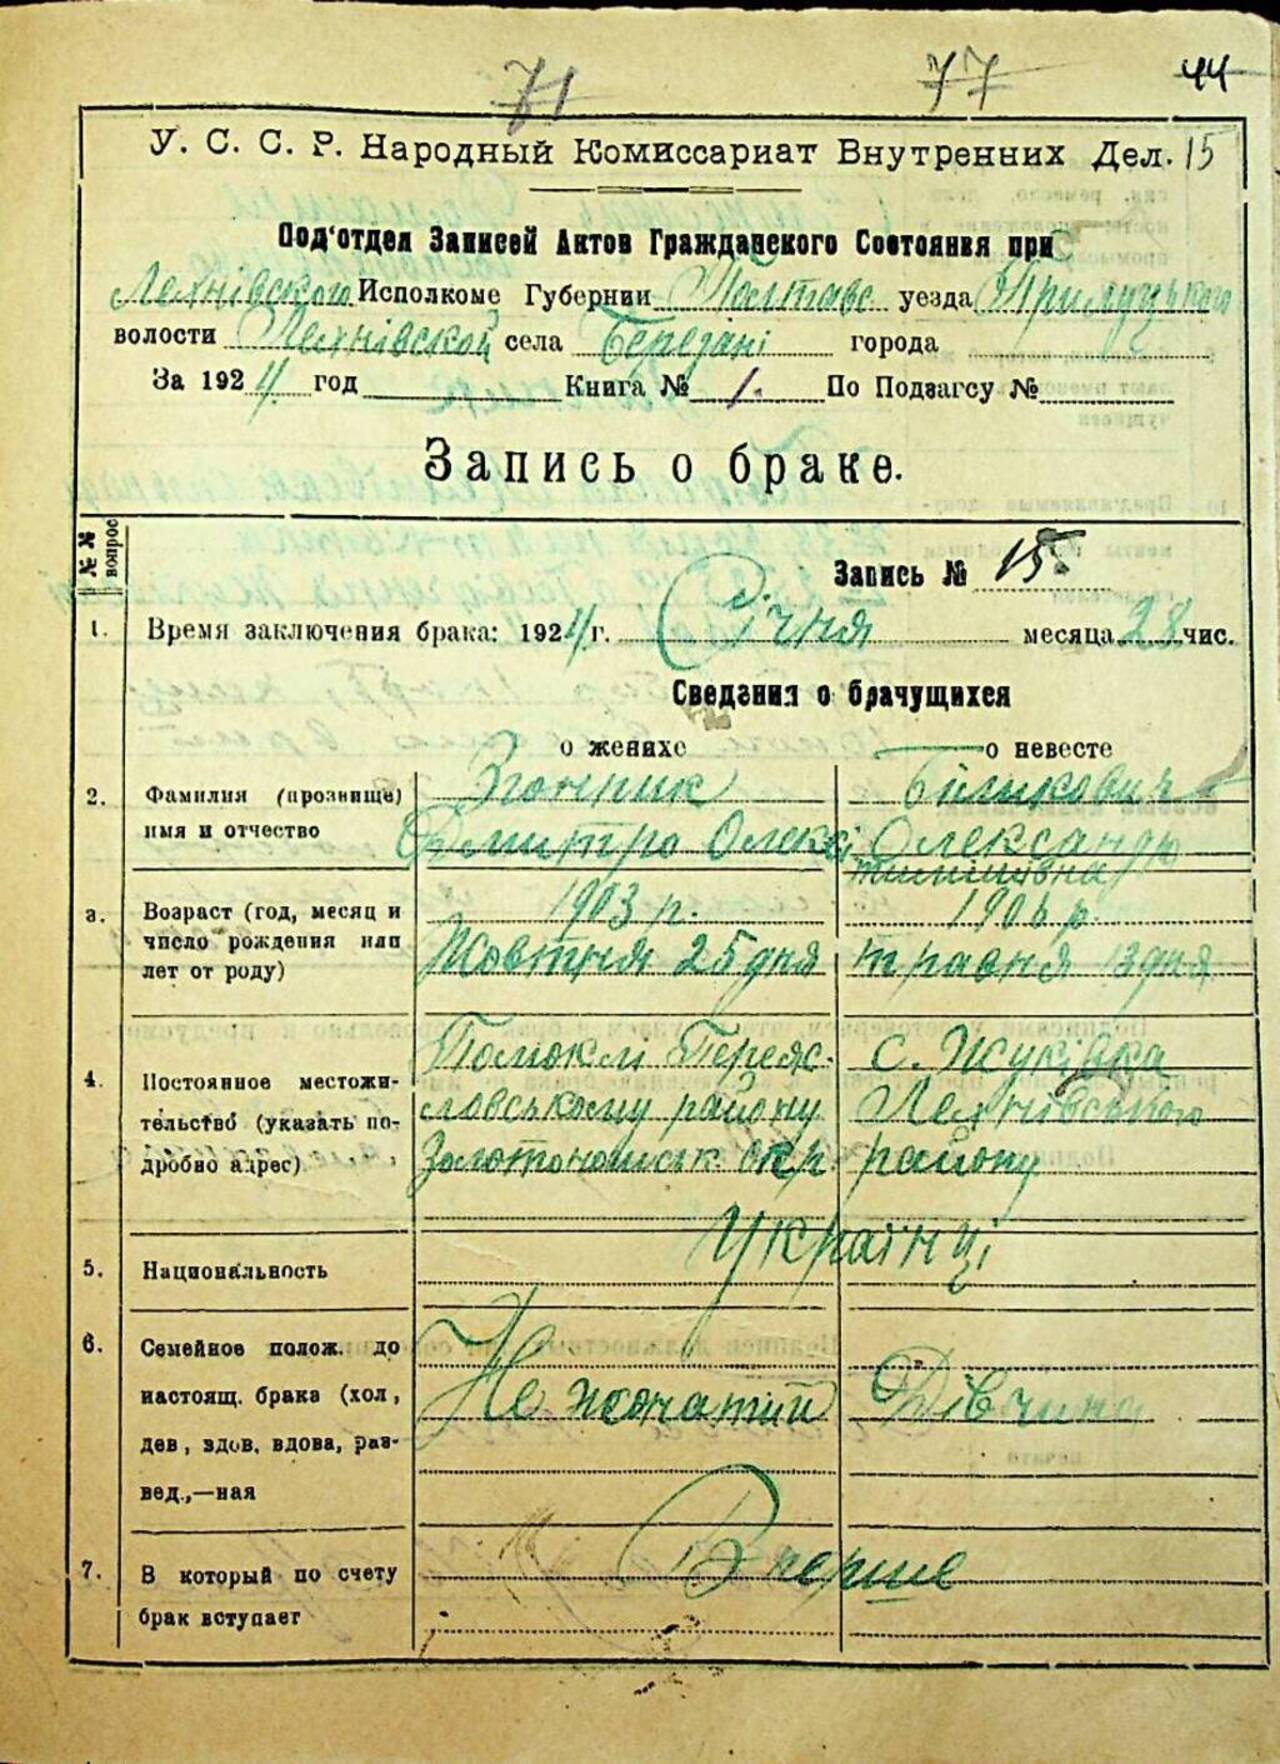 71 77 44
У. С. С. Р. Народный Комиссариат Внутренних Дел. 15
Под'отдел Записей Актов Гражданского Состояния при
Лехнівского Исполкоме Губернии Полтавс уезда Прилуцького
волости Лехнівской села Березані города
За 1924 год Книга № 1. По Подзагсу №
Запись о браке.
№ № вопрос
Запись № 15.
1. Время заключения брака: 1924 г. Січня месяца 28 чис.
Сведения о брачущихся
о женихе о невесте
2. Фамилия (прозвище) имя и отчество
Дмитро Олексі Олександра
3. Возраст (год, месяц и число рождения или лет от роду)
1903 р.
Жовтня 25 дня травня 13 дня
4. Постоянное местожительство (указать подробно адрес)
Помоклі Переяс- с. Жуківка
лавському району Лехнівського
Золотоношськ. окр. району
5. Национальность
Українці
6. Семейное полож. до настоящ. брака (хол, дев, вдов, вдова, развед.,—ная
Не жонатий Дівчина
7. В который по счету брак вступает
Вперше